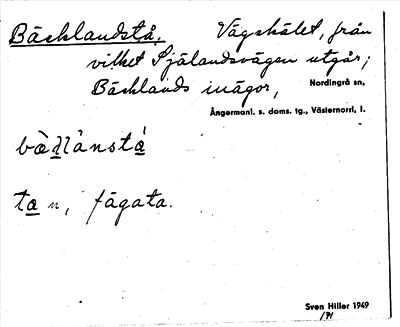 Bäcklandstå. Vägskälet, från
vilket Själandsvägen utgår;
Bäcklands inägor, Nordingrå sn,
Ångermanl. s. doms. tg., Västernorrl. l.
ta n, fägata.
Sven Hiller 1949